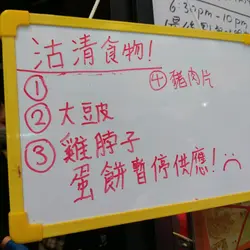 6:30pm - 10pm
沽清食物!
①
④豬肉片
②大豆皮
③雞脖子
蛋餅暫停供應!